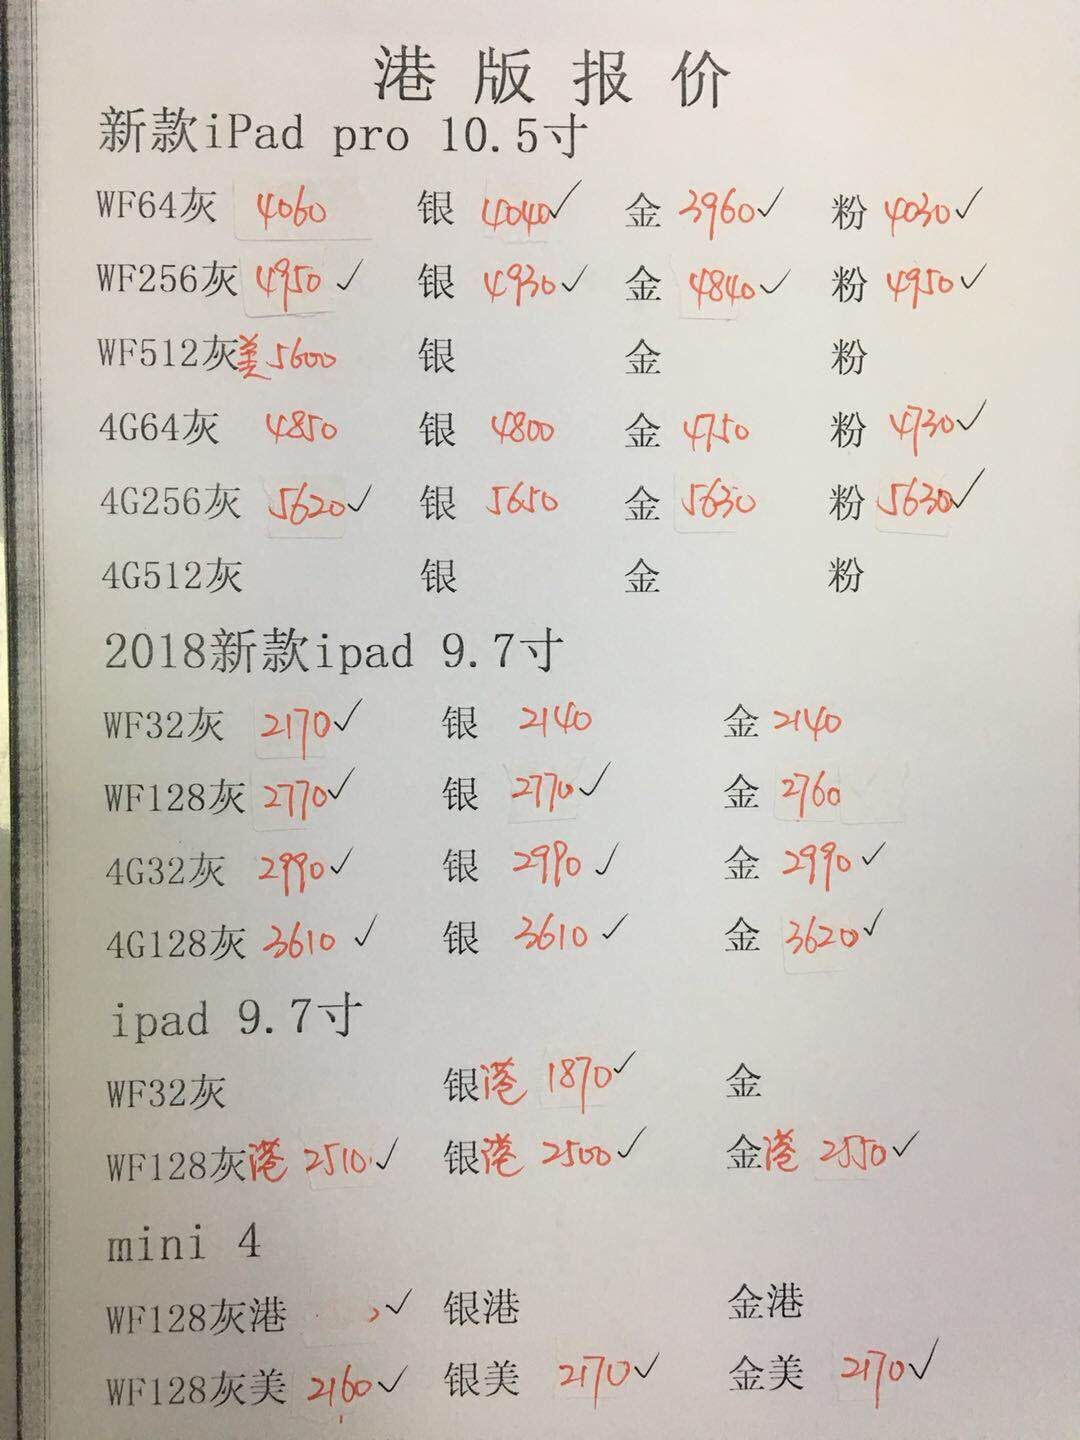 港版报价
新款iPad pro 10.5寸
WF64灰 4060 银 4040✓ 金 3960✓ 粉 4030✓
WF256灰 4950 ✓ 银 4930✓ 金 4840✓ 粉 4950✓
WF512灰美5600 银 金 粉
4G64灰 4850 银 4800 金 4750 粉 4730✓
4G256灰 5620✓ 银 5650 金 5630 粉 5630✓
4G512灰 银 金 粉
2018新款ipad 9.7寸
WF32灰 2170✓ 银 2140 金 2140
WF128灰 2770✓ 银 2770✓ 金 2760
4G32灰 2990✓ 银 2990 ✓ 金 2990✓
4G128灰 3610 ✓ 银 3610 ✓ 金 3620✓
ipad 9.7寸
WF32灰 银港 1870✓ 金
WF128灰港 2510✓ 银港 2500✓ 金港 2550✓
mini 4
WF128灰港 ✓ 银港 金港
WF128灰美 2160✓ 银美 2170✓ 金美 2170✓